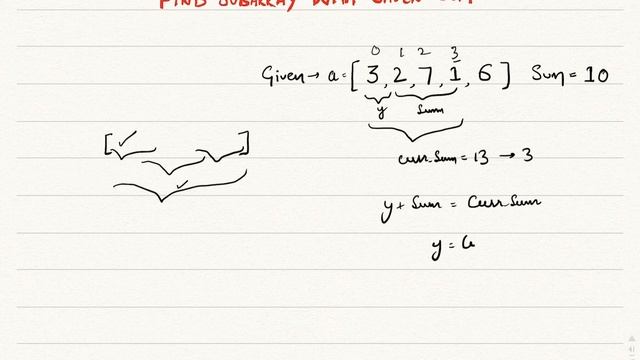 FIND SUBARRAY WITH GIVEN SUM
0 1 2 3
Given → a = [ 3, 2, 7, 1, 6 ] Sum = 10
y Sum
curr.Sum = 13 → 3
y + Sum = Curr.Sum
y = C